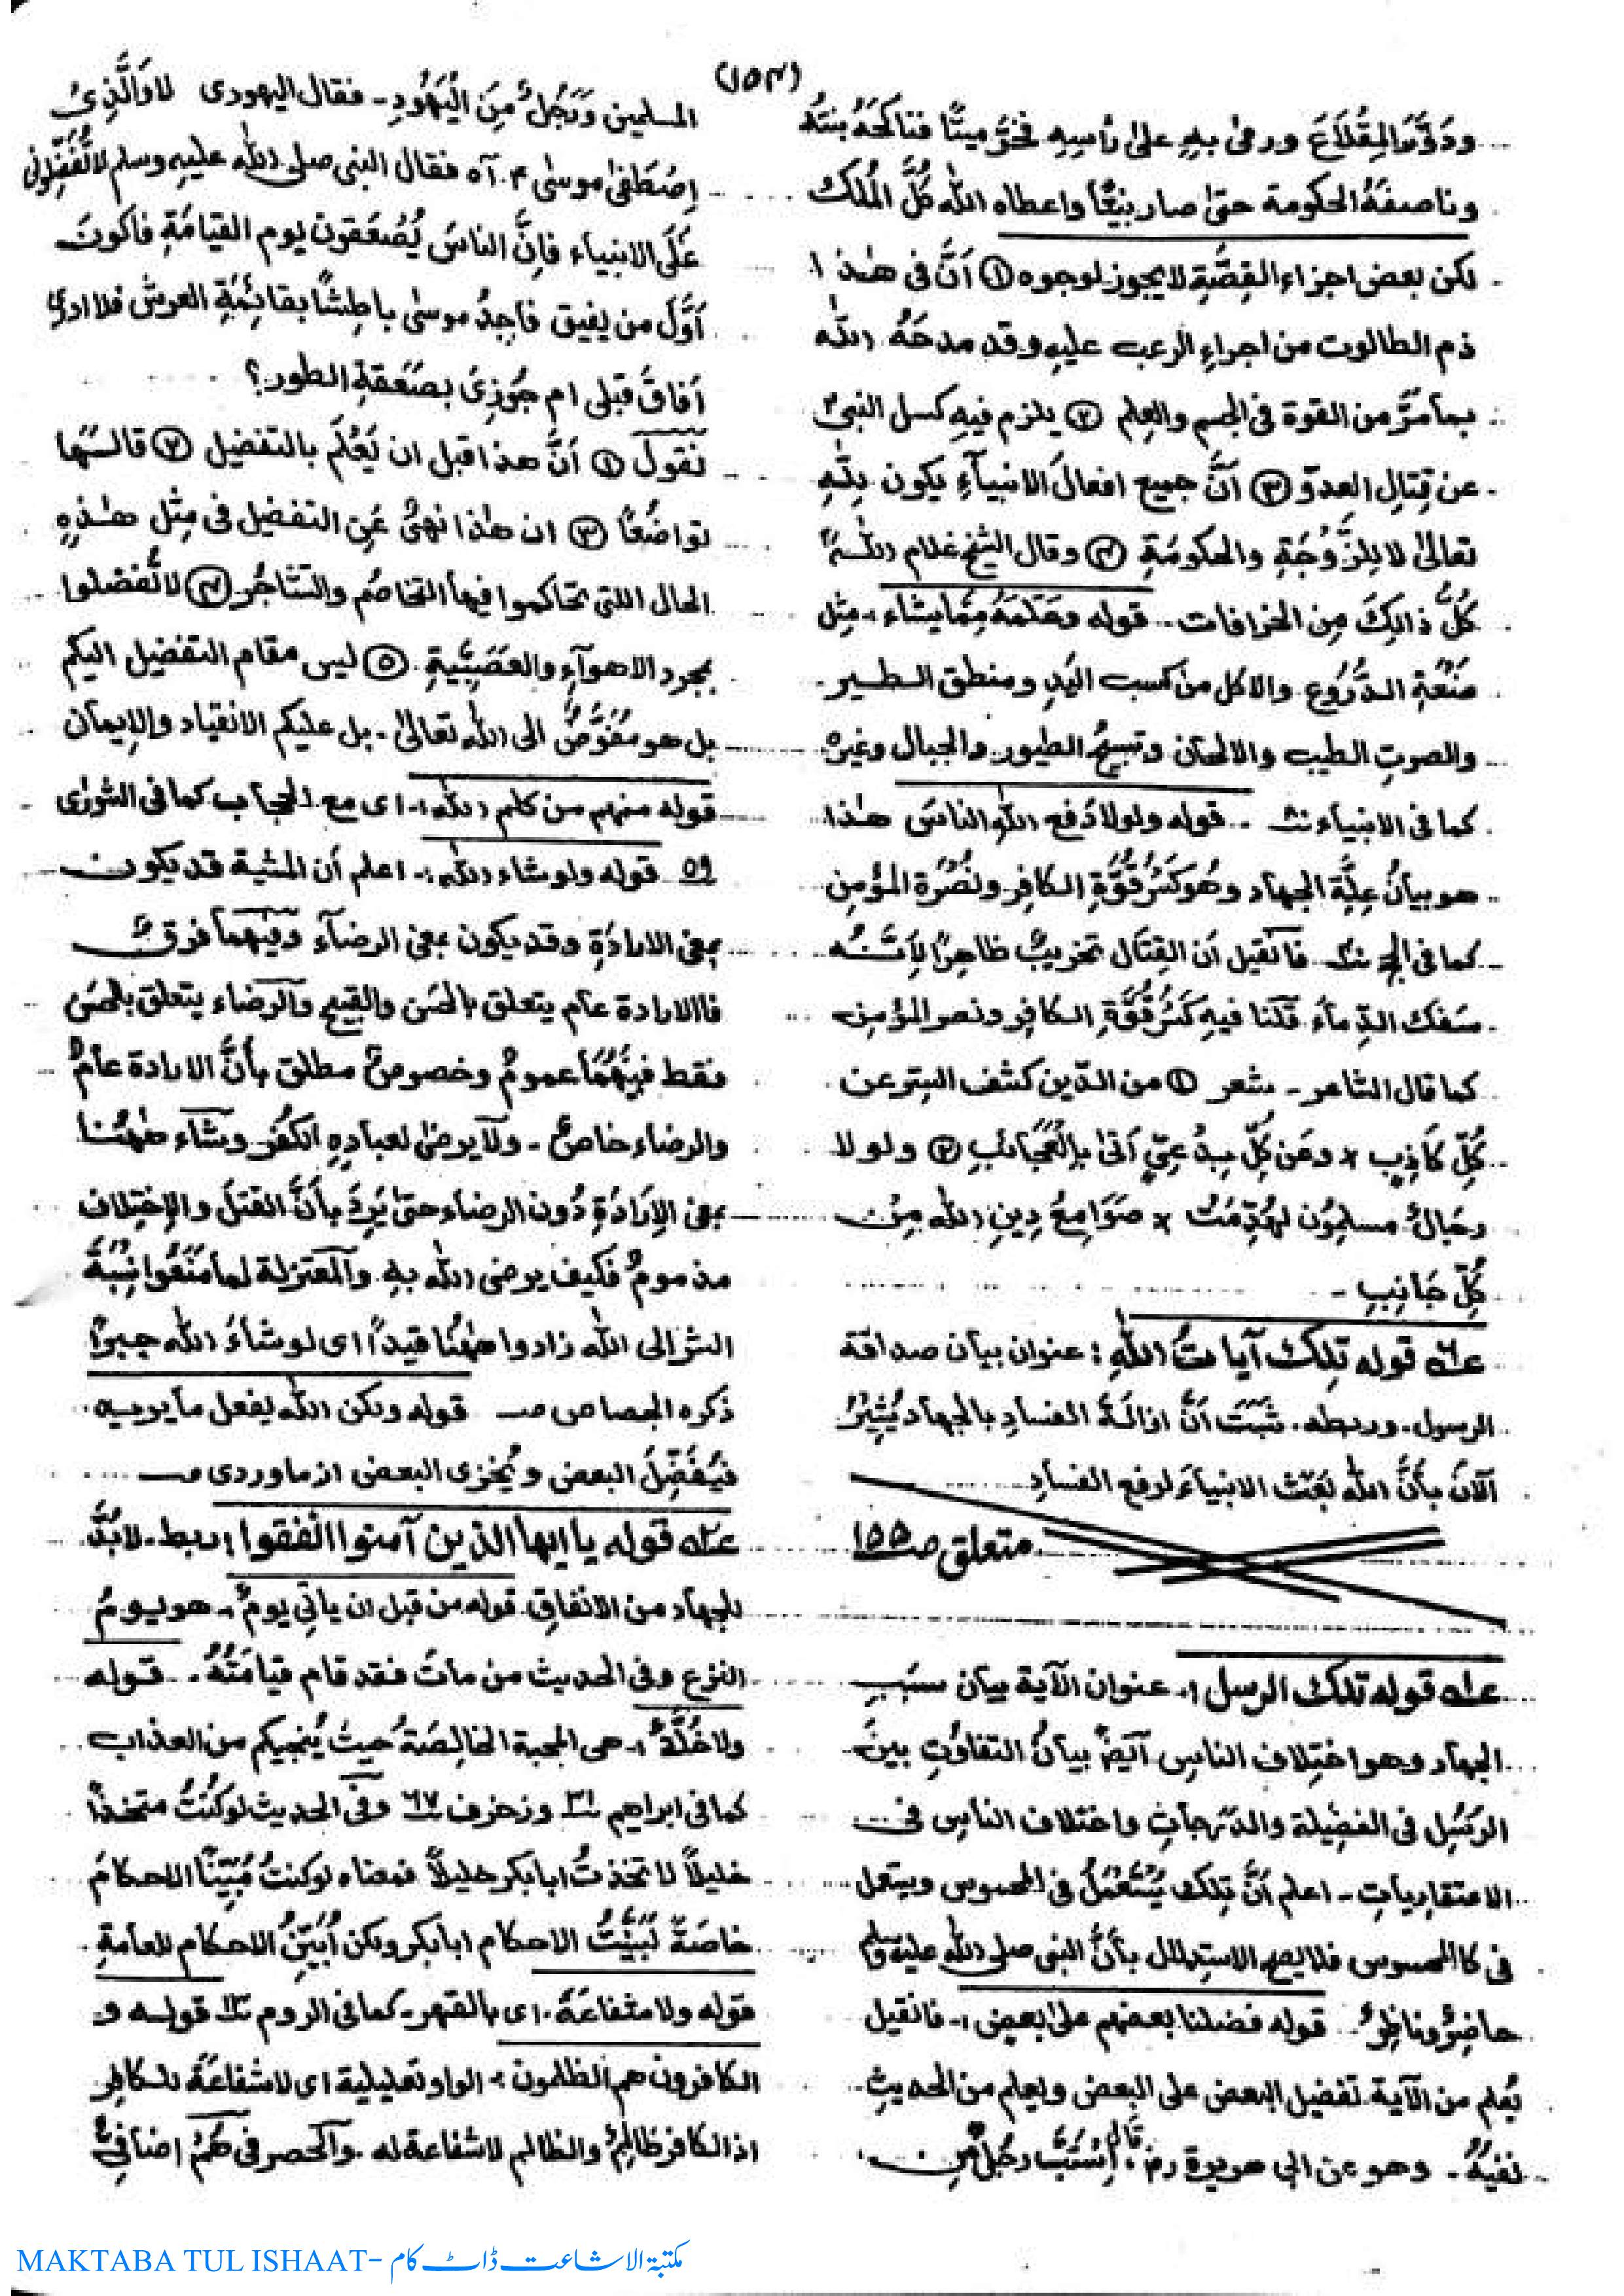 (١٥٤)
ودَوَّرَ المِقْلَاعَ ورمىٰ بهٖ علىٰ رأسِهٖ فخرَّ ميتًا فناكحَهٗ بنتَهٗ
وناصفَهُ الحكومة حتىٰ صار نبيًّا واعطاه اللّٰه كُلَّ المُلك
لكن بعض اجزاء القِصَّةِ لا يجوز لوجوه ① اَنَّ فى هٰذا
ذم الطالوت من اجراءِ الرعب عليهِ وقد مدحَهُ اللّٰه
بما مَرَّ من القوة فى الجسم والعِلم ② يلزم فيهِ كسل النبىؑ
عن قِتالِ العدوّ ③ اَنَّ جميع افعالَ الانبيآءِ يكون لِلّٰهِ
تعالىٰ لا لِلزَّوْجَةِ والحكومَةِ ④ وقال الشيخ غلام اللّٰهؒ
كُلُّ ذالِكَ مِن الخرافات۔ قوله وعَلَّمَهٗ مِمَّا يشاء۔ مِثل
صَنْعَةِ الدُّرُوعِ والاكل من كسب اليَدِ ومنطق الطير
والصوتِ الطيب والالحان وتسبيح الطيور والجبال وغيرهٗ
كما فى الانبياء۔ قوله ولولا دَفع اللّٰهِ الناسَ هٰذا
هو بيانُ عِلَّةِ الجهاد وهُوَ كَسْرُ قُوَّةِ الكافِر ونُصْرَة المؤمِن
كما فى الحج فانقيل اَن القِتَال تخريبٌ ظاهِرًا لِاَنَّهٗ
سَفك الدِّماء قُلْنا فيهِ كَسْرُ قُوَّةِ الكافِرِ ونصر المؤمِن
كما قال الشاعر۔ شعر ① من الدّين كشف السِتر عن
كُلِّ كَاذِبٍ × وعَن كُلِّ بِدْعِيٍّ اَتىٰ بِالْعَجَائبِ ② ولولا
رِجَالٌ مسلِمُون لهُدِّمَتْ × صَوَامِعُ دِينِ اللّٰه مِنْ
كُلِّ جَانِبٍ۔
قوله تِلكَ آياتُ اللّٰهِ : عنوان بيان صداقة
الرسول۔ وربطه۔ ثَبَتَ اَنَّ ازالةَ الفسادِ بالجهاد يُشِيْرُ
آلآنَ بأَنَّ اللّٰه بَعَثَ الانبياءَ لرفع الفسادِ
متعلق صـ ١٥٥
قوله تلك الرسل :۔ عنوان الآية بيان سبَبِ
الجهاد وهو اختِلاف الناسِ آيضً بيانُ التفاوُتِ بينَ
الرُسُلِ فى الفضِيلة والدّرجاتِ واختلاف الناسِ فى
الاعتقادياتِ۔ اعلم اَنَّ تِلكَ يُسْتَعْمَلُ فى المحسوس ويستعمل
فى كالمحسوس فلا يصح الاستِدلال بأَنَّ النبى صلى اللّٰه عليه وسلم
حاضِرٌ وناظِرٌ۔ قوله فضلنا بعضهم علىٰ بعضٍ :۔ فانقيل
يُعلم من الآية تفضيل البعض على البعض ويعلم من الحديثِ
نفيُهٗ۔ وهو عن ابى هريرةؓ قال اِسْتَبَّ رجُلٌ مِن
المسلمين وَرَجُلٌ مِنَ الْيَهُودِ۔ فقال اليهودى لا وَالَّذِى
اِصْطَفىٰ موسىٰؑ آه فقال النبى صلى اللّٰه عليهِ وسلم لا تُفَضِّلونى
عَلَى الانبياء فاِنَّ الناسَ يُصْعَقون يوم القيامَةِ فاكونَ
اَوَّلَ من يفيق فاَجِدُ موسىٰ باطِشًا بقائِمَةِ العرش فلا ادرى
اَفاقَ قبلى ام جُوزِىَ بصَعَقةِ الطور؟
نقول ① اَنَّ هذا قبل ان يَعْلَم بالتفضيل ② قالها
تواضُعًا ③ ان هٰذا نهىٌ عَنِ التفضل فى مِثل هٰذِهٖ
الحال اللتى تحاكموا فيها التخاصُم والتشاجُر ④ لا تُفضلوا
بمجرد الاهوآءِ والعَصَبِيَّةِ ⑤ ليس مقام التفضيل اليكم
بل هو مُفَوَّضٌ الى اللّٰه تعالىٰ۔ بل عليكم الانقياد والايمان
قوله منهم من كلم اللّٰه :۔ اى مع الحجاب كما فى الشورٰى
٥٩ قوله ولو شاء اللّٰه :۔ اعلم اَن المشية قد يكون
بمعنى الارادَةِ وقد يكون بمعنى الرضآء وبينهما فرق
فالارادة عام يتعلق بالحسَن والقبيح والرضاء يتعلق بالحسَن
فقط فبينهُمَا عمومٌ وخصوصٌ مطلق بأَنَّ الارادة عامٌ
والرضاء خاصٌ۔ ولا يرضىٰ لعبادِهِ الكفر وشآء هٰهُنا
بمعنى الاِرَادَةِ دُون الرضاء حتىٰ يَرِدَ بأَنَّ القتلَ والاِختِلاف
مذمومٌ فكيف يرضى اللّٰه بهٖ والمعتزلة لما مَنَعُوا نِسْبَةَ
الشر الى اللّٰه زادوا هٰهُنا قيداً اى لو شاءَ اللّٰه جبرًا
ذكره الجصاص صـ قوله ولكن اللّٰه يفعل ما يريد
فيُفَضِّلَ البعض ويُخزى البعض از ماوردى صـ
قوله يا ايها الذين آمنوا انفقوا : ربط۔ لابُدَّ
للجهاد من الانفاقِ۔ قوله من قبل ان يأتى يومٌ۔ هو يومُ
النزع وفى الحديث من ماتَ فقد قام قيامَتُهٗ۔ قوله
ولا خُلَّةٌ :۔ هى المحبة الخالِصَةُ حيثُ يُنجيكم من العذاب
كما فى ابراهيم ٣١ وزخرف ٦٧ وفى الحديث لو كُنْتُ متخذًا
خليلاً لاتخذتُ ابابكر خليلاً فمعناه لو كنتُ مُبَيِّنًا الاحكامَ
خاصَةً لَبَيَّنْتُ الاحكام ابابكر ولكن اُبَيِّنُ الاحكام للعامةِ
قوله ولا شفاعَةٌ۔ اى بالقهر۔ كما فى الروم ١٣ قوله و
الكافرون هم الظلمون :۔ الواو تعليلية اى لا شفاعَةَ للكافِرِ
اذ الكافر ظالِمٌ والظالم لا شفاعة له۔ والحصر فى هُمْ اضافىٌ
MAKTABA TUL ISHAAT- مکتبۃ الاشاعت ڈاٹ کام